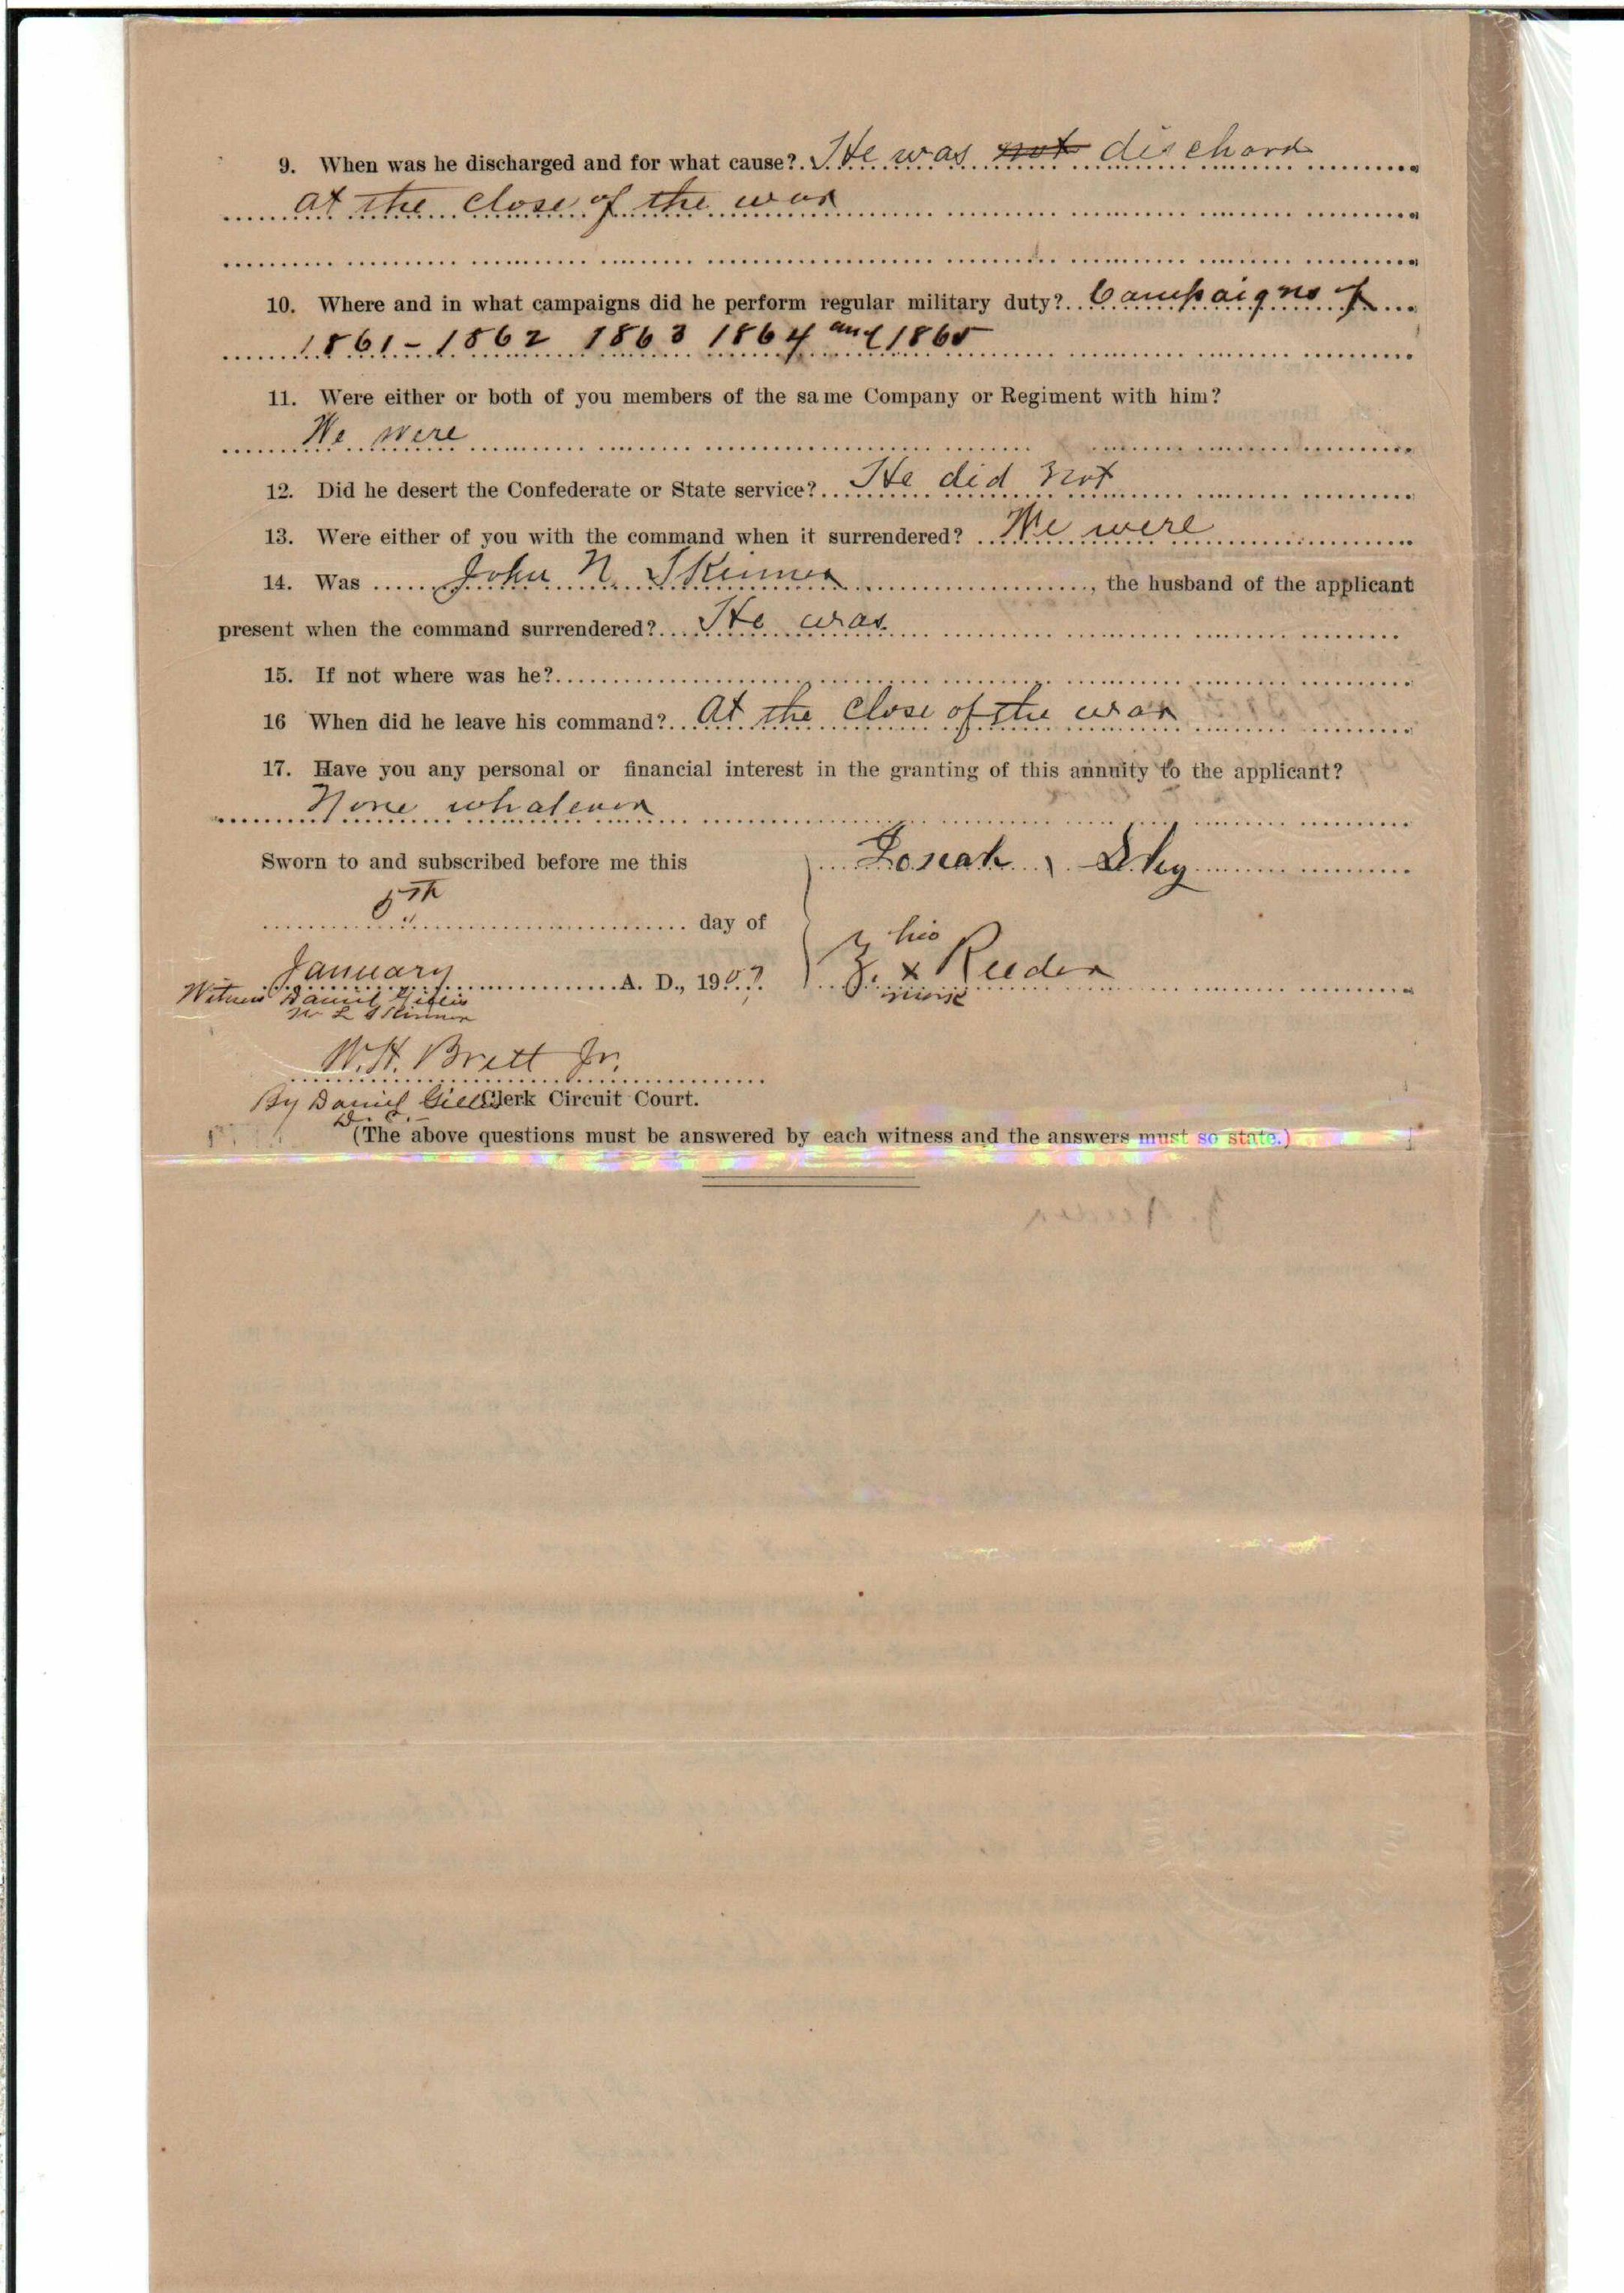 9. When was he discharged and for what cause? He was ~~not~~ dischard
at the close of the war
10. Where and in what campaigns did he perform regular military duty? Campaigns of
1861 - 1862 1863 1864 and 1865
11. Were either or both of you members of the same Company or Regiment with him?
We were
12. Did he desert the Confederate or State service? He did not
13. Were either of you with the command when it surrendered? We were
14. Was John N. Skinner, the husband of the applicant
present when the command surrendered? He was
15. If not where was he?
16 When did he leave his command? At the close of the war
17. Have you any personal or financial interest in the granting of this annuity to the applicant?
None whatever
Sworn to and subscribed before me this
5th
day of
January A. D., 1907
Witness Daniel Gillis
L Skinner
his
Z. x Reeder
mark
W. H. Brett Jr.
By Daniel Gillis Clerk Circuit Court.
D. C.
(The above questions must be answered by each witness and the answers must so state.)